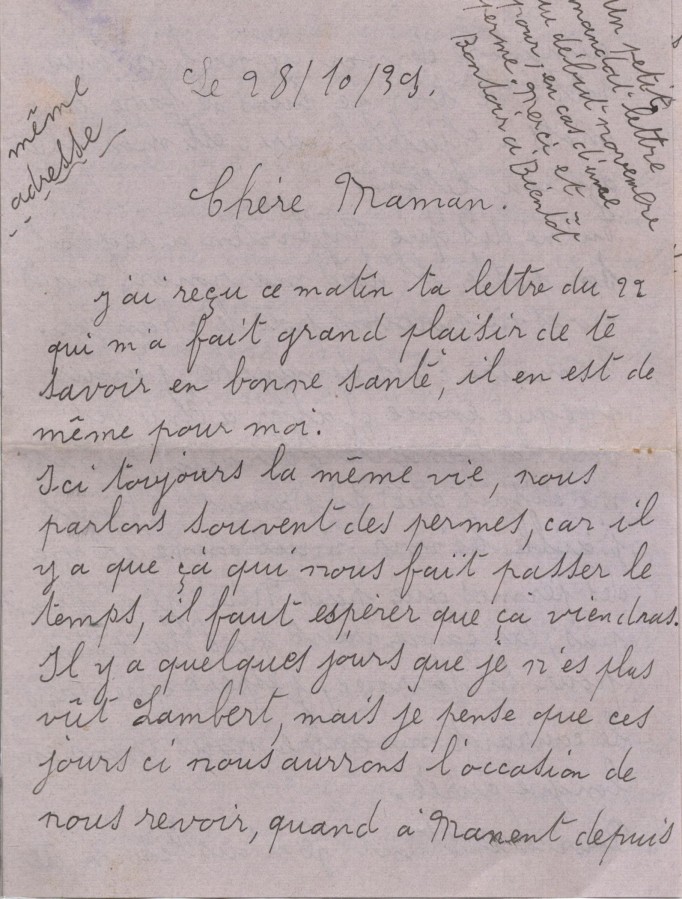 Un petit
mandat lettre
au début novembre
pour, en cas d'une
perme. Merci et
Bonsoir à Bientôt
Le 28/10/39.
même
adresse
Chère Maman.
j'ai reçu ce matin ta lettre du 22
qui m'a fait grand plaisir de te
savoir en bonne santé, il en est de
même pour moi.
Ici toujours la même vie, nous
parlons souvent des permes, car il
y a que çà qui nous faït passer le
temps, il faut espérer que çà viendras.
Il y a quelques jours que je n'es plus
vût Lambert, mais je pense que ces
jours ci nous aurrons l'occasion de
nous revoir, quand à Manent depuis